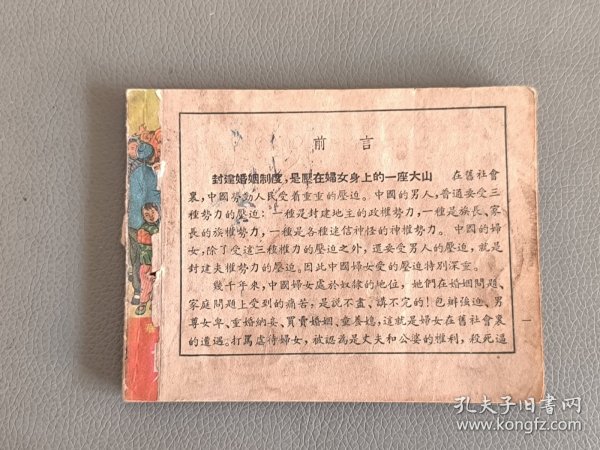 前言
封建婚姻制度，是壓在婦女身上的一座大山 在舊社會
裏，中國勞動人民受着重重的壓迫。中國的男人，普通要受三
種勢力的壓迫：一種是封建地主的政權勢力，一種是族長、家
長的族權勢力，一種是各種迷信神怪的神權勢力。中國的婦
女，除了受這三種權力的壓迫之外，還要受男人的壓迫，就是
封建夫權勢力的壓迫。因此中國婦女受的壓迫特别深重。
幾千年來，中國婦女處於奴隸的地位，她們在婚姻問題、
家庭問題上受到的痛苦，是説不盡、講不完的！包辦強迫、男
尊女卑、重婚納妾、買賣婚姻、童養媳，這就是婦女在舊社會裏
的遭遇。打罵虐待婦女，被認為是丈夫和公婆的權利，殺死逼
一
孔夫子旧书网
www.kongfz.com